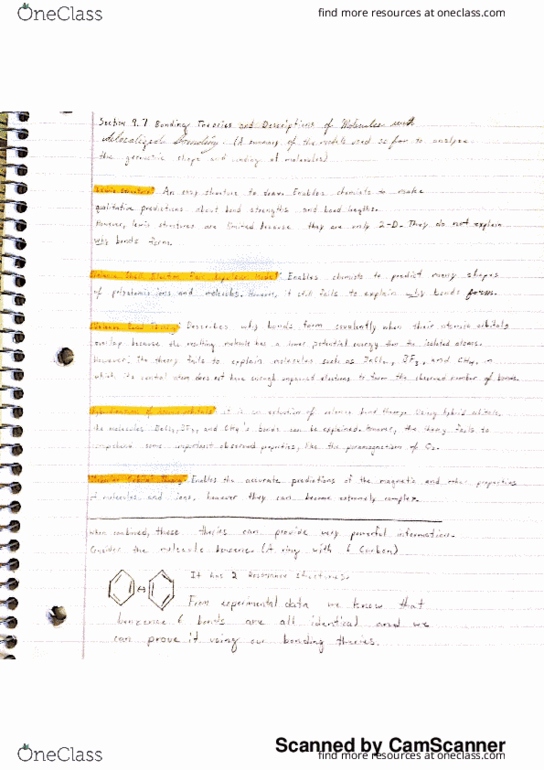 OneClass
find more resources at oneclass.com
Section 9.7 Bonding Theories and Descriptions of Molecules with
delocalized bonding. (A summary of the models used so far to analyze
the geometric shape and bonding of molecules)
Lewis structure: An easy structure to draw. Enables chemists to make
qualitative predictions about bond strengths and bond lengths.
However, lewis structures are limited because they are only 2-D. They do not explain
why bonds form.
Valence Shell Electron Pair Repulsion Model: Enables chemists to predict many shapes
of polyatomic ions and molecules. However, it still fails to explain why bonds form.
Valence Bond Theory: Describes why bonds form covalently when their atomic orbitals
overlap because the resulting molecule has a lower potential energy than the isolated atoms.
However, the theory fails to explain molecules such as BeCl2, BF3, and CH4, in
which the central atom does not have enough unpaired electrons to form the observed number of bonds.
Hybridization of atomic orbitals: it is an extension of valence bond theory. Using hybrid orbitals,
the molecules BeCl2, BF3, and CH4's bonds can be explained. However, the theory fails to
comprehend some important observed properties, like the paramagnetism of O2.
Molecular Orbital Theory: Enables the accurate predictions of the magnetic and other properties
of molecules, and ions, however they can become extremely complex.
when combined, these theries can provide very powerful information.
Consider the molecule benzene. (A ring with 6 Carbon)
It has 2 Resonance structures.
From experimental data we know that
benzence 6 bonds are all identical and we
can prove it using our bonding theries.
Scanned by CamScanner
OneClass
find more resources at oneclass.com